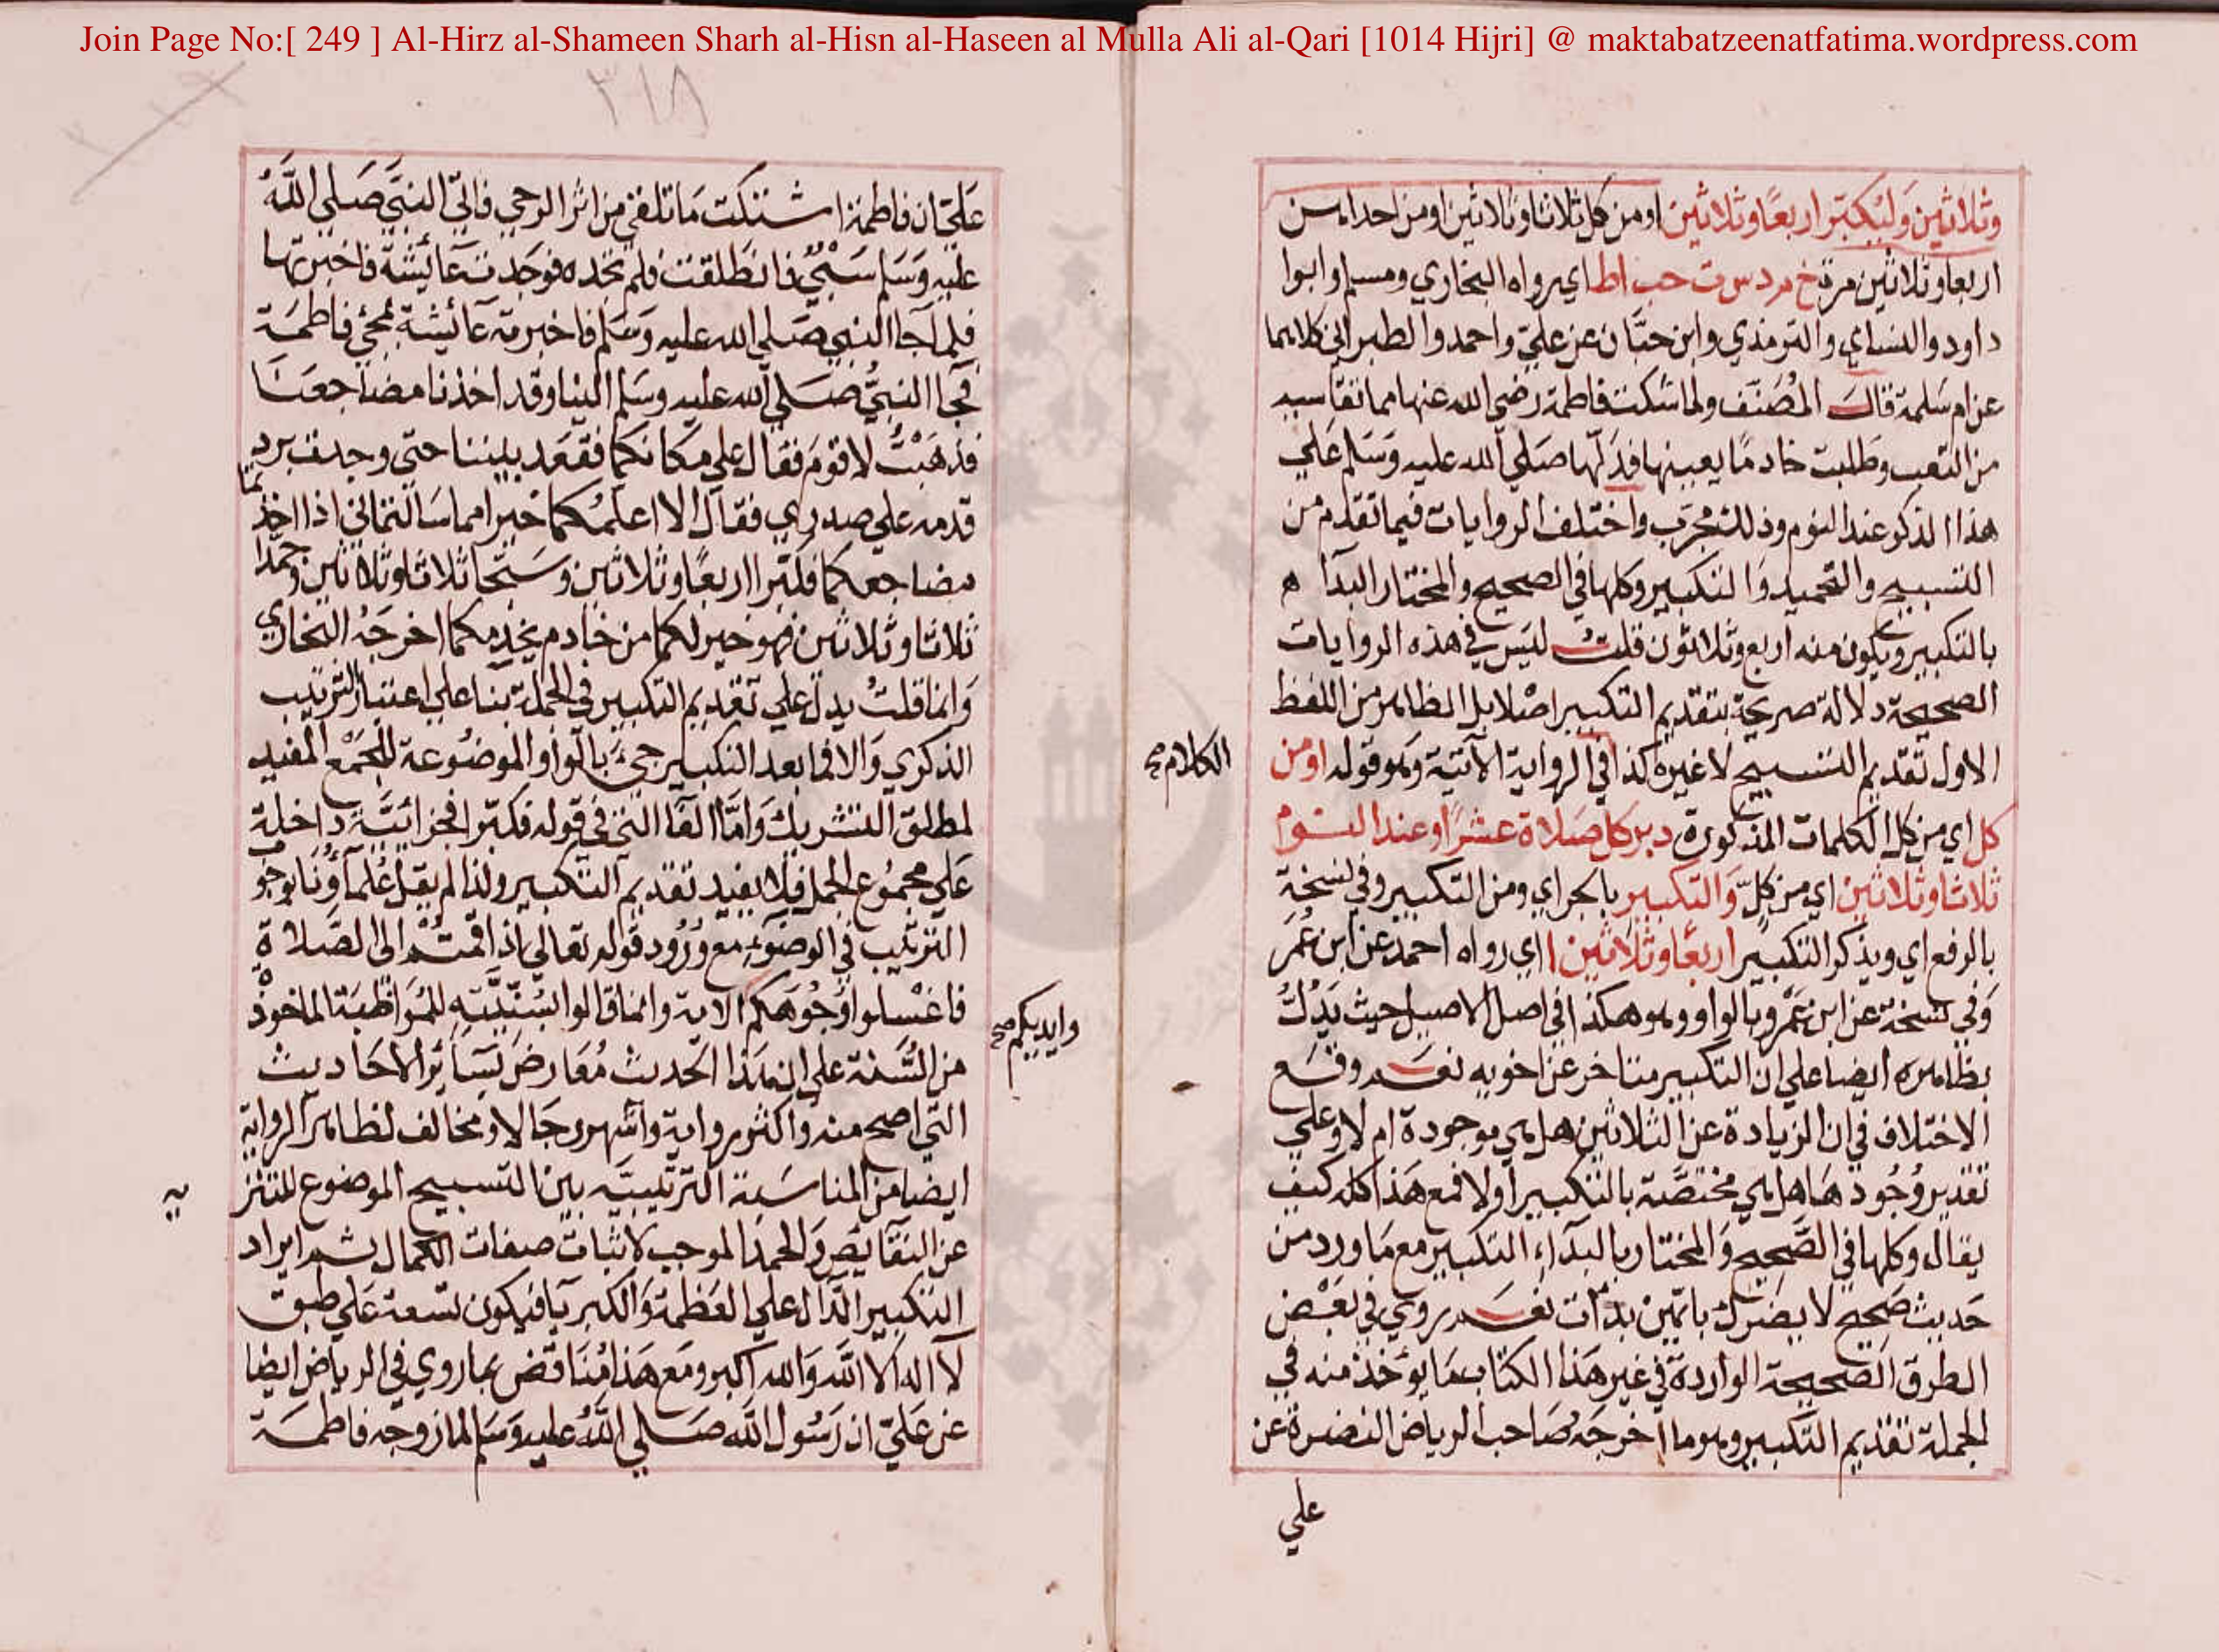 Join Page No:[ 249 ] Al-Hirz al-Shameen Sharh al-Hisn al-Haseen al Mulla Ali al-Qari [1014 Hijri] @ maktabatzeenatfatima.wordpress.com
وثلاثين وليكبر اربعا وثلاثين او من كل ثلاثا وثلاثين او من احداهن
اربعا وثلاثين مرة خ م د س ت حب اط اي رواه البخاري ومسلم وابوا
داود والنساي والترمذي وابن حبان عن علي واحمد والطبراني كلاهما
عن ام سلمة قال المصنف ولما شكت فاطمة رضي الله عنها مما تقاسيه
من التعب وطلبت خادما يعينها فدلها صلي الله عليه وسلم علي
هذا الذكر عند النوم وذلك مجرب واختلف الروايات فيما تقدم من
التسبيح والتحميد والتكبير وكلها في الصحيح والمختار البداه
بالتكبير ويكون منه اربع وثلاثون قلت ليس في هذه الروايات
الصحيحة دلالة صريحة بتقديم التكبير اصلا بل الظاهر من اللفظ
الاول تقديم التسبيح لا غيره كذا في الرواية الآتية وهو قوله او من
الكلام صح
كل اي من كل الكلمات المذكورة دبر كل صلاة عشرا وعند النوم
ثلاثا وثلاثين اي من كل والتكبير بالجر اي ومن التكبير وفي نسخة
بالرفع اي ويذكر التكبير اربعا وثلاثين ا اي رواه احمد عن ابن عمر
وفي نسخة عن ابن عمرو بالواو وهو هكذا في اصل الاصيل حيث يدل
بظاهره ايضا علي ان التكبير متاخر عن اخويه نعم وقع
الاختلاف في ان الزيادة عن الثلاثين هل هي موجودة ام لا وعلي
تقدير وجودها هل هي مختصة بالتكبير اولا فمع هذا كله كيف
يقال وكلها في الصحيح والمختار بالبداء التكبير مع ما ورد من
حديث صحيح لا يضرك بايهن بدات نعم روي في بعض
الطرق الصحيحة الواردة في غير هذا الكتاب ما يؤخذ منه في
الجملة تقديم التكبير وهو ما اخرجه صاحب الرياض النضرة عن
علي
٣١٨
علي ان فاطمة اشتكت ما تلقي من اثر الرحي فاتي النبي صلي الله
عليه وسلم سبي فانطلقت فلم تجده فوجدت عائشة فاخبرتها
فلما جاا النبي صلي الله عليه وسلم فاخبرته عائشة بمجئ فاطمة
فجاا النبي صلي الله عليه وسلم الينا وقد اخذنا مضاجعنا
فذهبت لاقوم فقال علي مكانكما فقعد بيننا حتي وجدت برد
قدمه علي صدري فقال الا اعلمكما خيرا مما سالتماني اذا اخذتما
مضاجعكما فكبرا اربعا وثلاثين وسبحا ثلاثا وثلاثين وحمدا
ثلاثا وثلاثين فهو خير لكما من خادم يخدمكما اخرجه البخاري
وانما قلت يدل علي تقديم التكبير في الجملة بنا علي اعتبار الترتيب
الذكري والا فما بعد التكبير جئ بالواو الموضوعة للجمع المفيد
لمطلق التشريك واما الفا التي في قوله فكبرا فجزائية داخلة
علي مجموع الجمل فلا يفيد تقديم التكبير ولذا لم يقل علماؤنا بوجوب
الترتيب في الوضوء مع ورود قوله تعالي اذا قمتم الى الصلاة
فاغسلوا وجوهكم الاية وانما قالوا بسنيته للمواظبة الماخوذة
وايديكم صح
من السنة علي ان هذا الحديث معارض بسائر الاحاديث
التي اصح منه واكثر رواية واشهر رجالا ومخالف لظاهر الرواية
ايضا من المناسبة الترتيبيه بين التسبيح الموضوع للتنزيه
عن النقائص والحمد الموجب لاثبات صفات الكمال ثم ايراد
التكبير الدال علي العظمة والكبريا فيكون تسعة علي طبق
لا اله الا الله والله اكبر ومع هذا مناقض بما روي في الرياض ايضا
عن علي ان رسول الله صلي الله عليه وسلم لما زوجه فاطمة